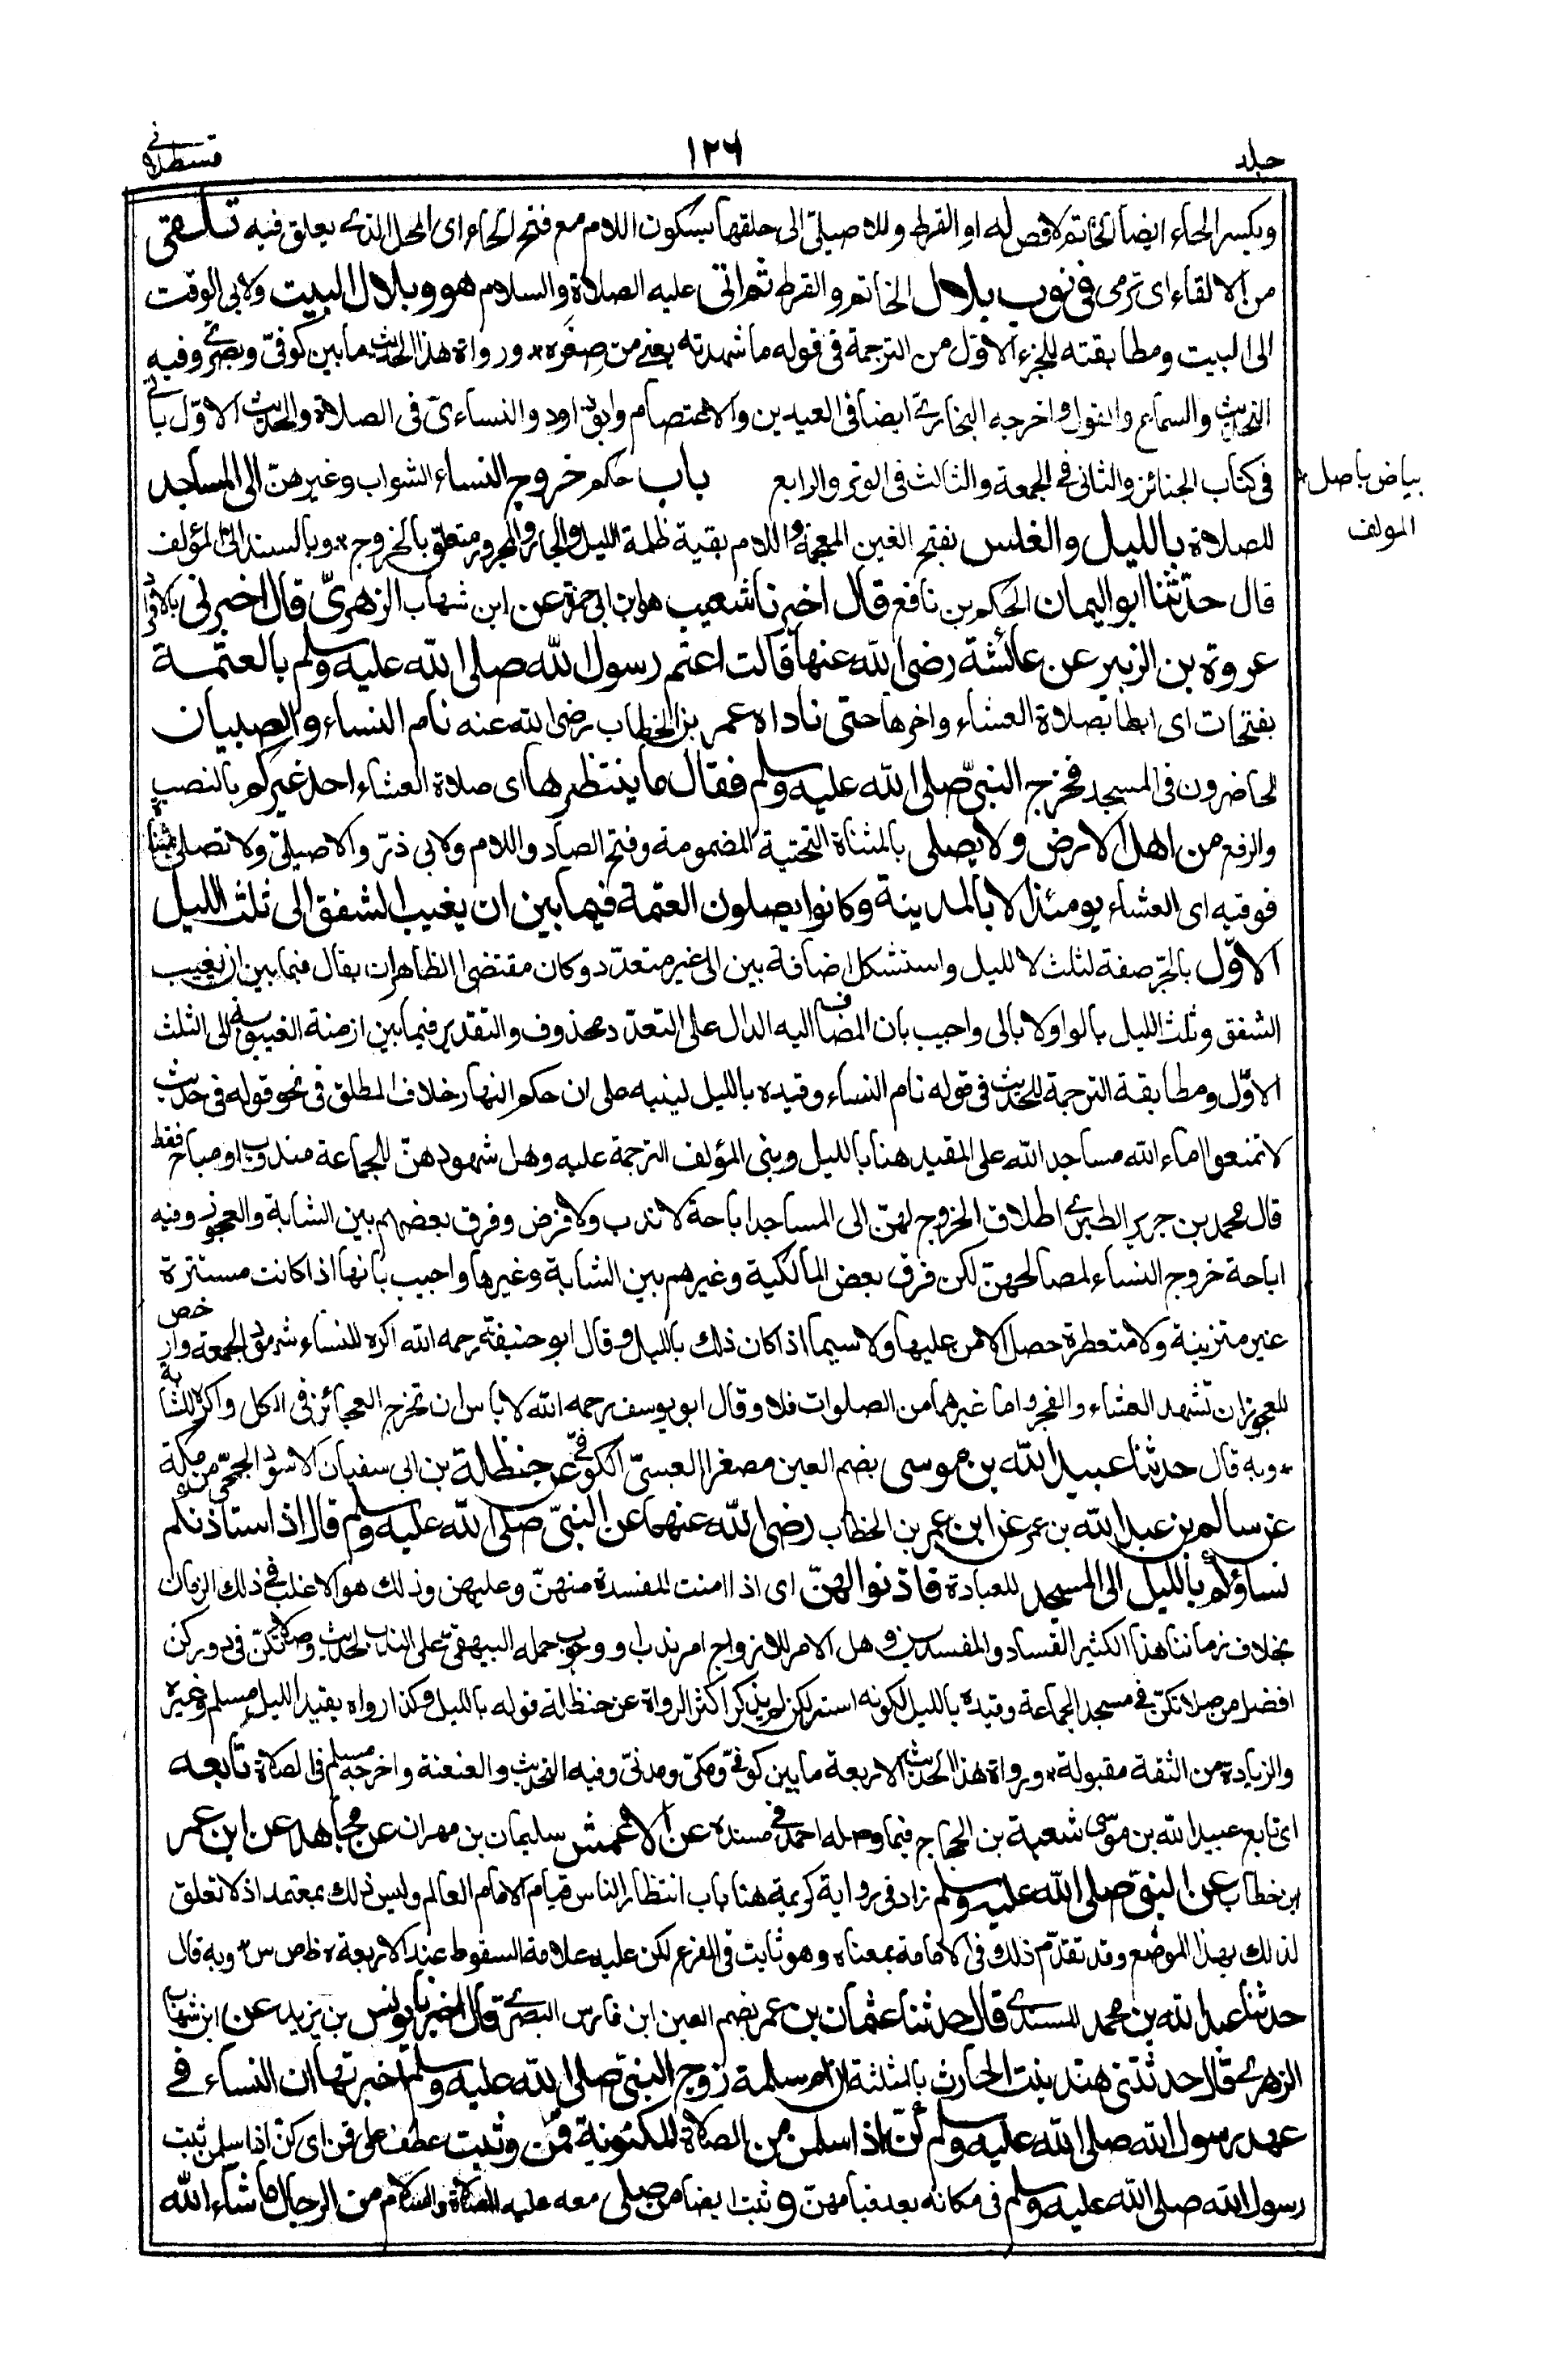 جلد ١٢٦ قسطلانی
وبكسر الحاء ايضا الخاتم لا فص له او القرط وللاصيلىّ الى حلقها بسكون اللام مع فتح الحاء اى المحل الذى يعلق فيه تلقى
من الالقاء اى ترمى فى ثوب بلال الخاتم والقرط ثم اتى عليه الصلاة والسلام هو وبلال البيت ولابى الوقت
الى البيت ومطابقته للجزء الاوّل من الترجمة فى قوله ما شهدته يعنى من صغره * ورواة هذا الحديث ما بين كوفىّ وبصرىّ وفيه
التحديث والسماع والقول واخرجه البخارىّ ايضا فى العيدين والاعتصام وابو داود والنساءىّ فى الصلاة والحديث الاوّل ياتى
فى كتاب الجنائز والثانى فى الجمعة والثالث فى الوتر والرابع باب حكم خروج النساء الشواب وغيرهنّ الى المساجد
بياض باصل المولف
للصلاة بالليل والغلس بفتح الغين المعجمة واللام بقية ظلمة الليل والجار والمجرور متعلق بالخروج * وبالسند الى المؤلف
قال حدّثنا ابو اليمان الحكم بن نافع قال اخبرنا شعيب هو ابن ابى حمزة عن ابن شهاب الزهرىّ قال اخبرنى بالافراد
عروة بن الزبير عن عائشة رضى الله عنها قالت اعتم رسول الله صلى الله عليه وسلم بالعتمة
بفتحات اى ابطا بصلاة العشاء واخرها حتى ناداه عمر بن الخطاب رضى الله عنه نام النساء والصبيان
الحاضرون فى المسجد فخرج النبىّ صلى الله عليه وسلم فقال ما ينتظرها اى صلاة العشاء احد غيركم بالنصب
والرفع من اهل الارض ولا يصلى بالمثناة التحتية المضمومة وفتح الصاد واللام ولابى ذرّ والاصيلىّ ولا تصلى بمثناة
فوقيه اى العشاء يومئذ الا بالمدينة وكانوا يصلون العتمة فيما بين ان يغيب الشفق الى ثلث الليل
الاوّل بالجرّ صفة لثلث لا لليل واستشكل اضافة بين الى غير متعدّد وكان مقتضى الظاهر ان يقال فيما بين ان يغيب
الشفق وثلث الليل بالواو لا بالى واجيب بان المضاف اليه الدال على التعدّد محذوف والتقدير فيما بين ازمنة الغيبوبة الى الثلث
الاوّل ومطابقة الترجمة للحديث فى قوله نام النساء وقيده بالليل لينبه على ان حكم النهار خلاف المطلق فى نحو قوله فى حديث
لا تمنعوا اماء الله مساجد الله على المقيد هنا بالليل وبنى المؤلف الترجمة عليه وهل شهودهنّ للجماعة مندوب او مباح فقط
قال محمد بن جرير الطبرىّ اطلاق الخروج لهنّ الى المساجد اباحة لا ندب ولا فرض وفرق بعضهم بين الشابة والعجوز وفيه
اباحة خروج النساء لمصالحهنّ لكن فرق بعض المالكية وغيرهم بين الشابة وغيرها واجيب بانها اذا كانت مستترة
غير متزينة ولا متعطرة حصل الامن عليها ولا سيما اذا كان ذلك بالليل وقال ابو حنيفة رحمه الله اكره للنساء شهود الجمعة وارخص
للعجوز ان تشهد العشاء والفجر واما غيرهما من الصلوات فلا وقال ابو يوسف رحمه الله لا باس ان تخرج العجائز فى الكل واكره للشابة
* وبه قال حدثنا عبيد الله بن موسى بضم العين مصغرا العبسىّ الكوفىّ عن حنظلة بن ابى سفيان الاسود الجمحىّ من مكة
عن سالم بن عبد الله بن عمر عن ابن عمر بن الخطاب رضى الله عنهما عن النبىّ صلى الله عليه وسلم قال اذا استاذنكم
نساؤكم بالليل الى المسجد للعبادة فاذنوا لهنّ اى اذا امنت المفسدة منهنّ وعليهن وذلك هو الاغلب فى ذلك الزمان
بخلاف زماننا هذا الكثير الفساد والمفسدين وهل الامر للازواج امر ندب او وجوب حمله البيهقىّ على الندب لحديث وصلاتكنّ فى دوركن
افضل من صلاتكنّ فى مسجد الجماعة وقيده بالليل لكونه استر لكن لم يذكر اكثر الرواة عن حنظلة قوله بالليل وكذا رواه بقيد الليل مسلم وغيره
والزيادة من الثقة مقبولة * ورواة هذا الحديث الاربعة ما بين كوفىّ ومكىّ ومدنىّ وفيه التحديث والعنعنة واخرجه مسلم فى الصلاة تابعه
اى تابع عبيد الله بن موسى شعبة بن الحجاج فيما وصله احمد فى مسنده عن الاعمش سليمان بن مهران عن مجاهد عن ابن عمر
ابن خطاب عن النبىّ صلى الله عليه وسلم زاد فى رواية كريمة هنا باب انتظار الناس قيام الامام العالم وليس ذلك بمعتمد اذ لا تعلق
لذلك بهذا الموضع وقد تقدّم ذلك فى الامامة بمعناه وهو ثابت فى الفرع لكن عليه علامة السقوط عند الاربعة ه ظ ص س * وبه قال
حدثنا عبد الله بن محمد المسندىّ قال حدثنا عثمان بن عمر بضم العين ابن فارس البصرىّ قال اخبرنا يونس بن يزيد عن ابن شهاب
الزهرىّ قال حدثتنى هند بنت الحارث بالمثلثة ان ام سلمة زوج النبىّ صلى الله عليه وسلم اخبرتها ان النساء فى
عهد رسول الله صلى الله عليه وسلم كنّ اذا سلمن من الصلاة المكتوبة قمن وثبت عطف على قمن اى كنّ اذا سلمن ثبت
رسول الله صلى الله عليه وسلم فى مكانه بعد قيامهنّ وثبت ايضا من صلى معه عليه الصلاة والسلام من الرجال ما شاء الله